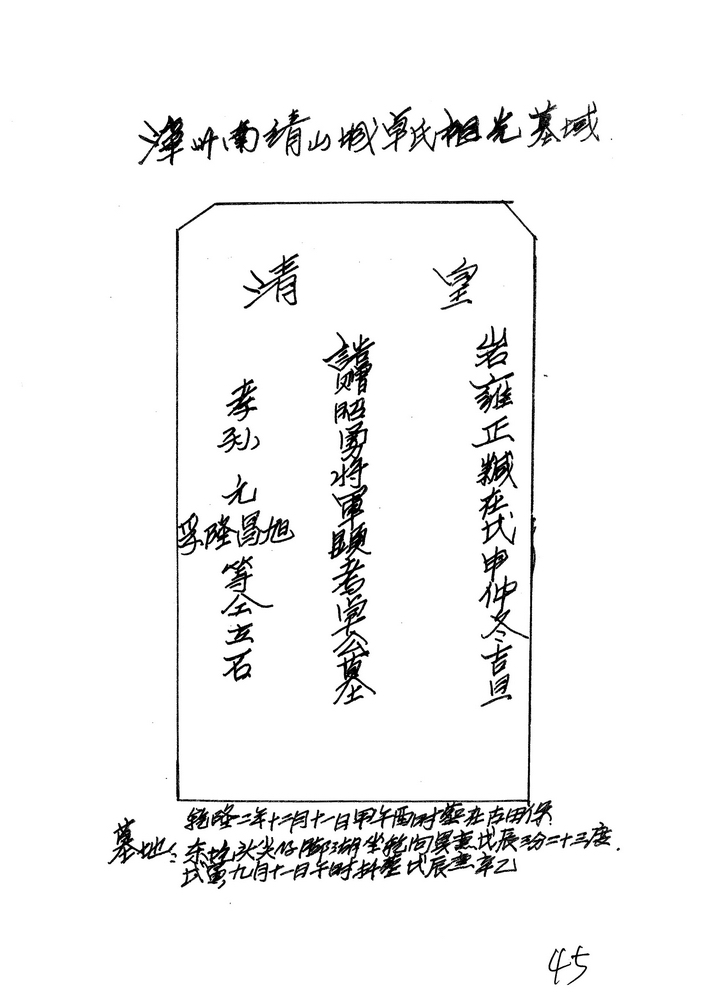 漳州南靖山城卓氏祖先墓域
皇清
岩雍正㘅在戊申仲冬吉旦
誥贈昭勇将軍顕考卓公墓
孝孙元孚隆昌旭等仝立石
乾隆二年十二月十一日甲午酉时葬在古田保
墓地：东坑头尖仔脚 坐乾向巽兼戊辰 分二十三度.
戊寅九月十一日午时 戊辰兼辛乙
45